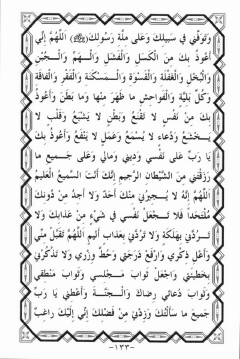 وَتَوَفَّنِي فِي سَبِيلِكَ وَعَلَى مِلَّةِ رَسُولِكَ (ﷺ) اَللّٰهُمَّ إِنِّي
أَعُوذُ بِكَ مِنَ الْكَسَلِ وَالْفَشَلِ وَالْهَمِّ وَالْجُبْنِ
وَالْبُخْلِ وَالْغَفْلَةِ وَالْقَسْوَةِ وَالْمَسْكَنَةِ وَالْفَقْرِ وَالْفَاقَةِ
وَكُلِّ بَلِيَّةٍ وَالْفَوَاحِشِ مَا ظَهَرَ مِنْهَا وَمَا بَطَنَ وَأَعُوذُ
بِكَ مِنْ نَفْسٍ لَا تَقْنَعُ وَبَطْنٍ لَا يَشْبَعُ وَقَلْبٍ لَا
يَخْشَعُ وَدُعَاءٍ لَا يُسْمَعُ وَعَمَلٍ لَا يَنْفَعُ وَأَعُوذُ بِكَ
يَا رَبِّ عَلَى نَفْسِي وَدِينِي وَمَالِي وَعَلَى جَمِيعِ مَا
رَزَقْتَنِي مِنَ الشَّيْطَانِ الرَّجِيمِ إِنَّكَ أَنْتَ السَّمِيعُ الْعَلِيمُ
اَللّٰهُمَّ إِنَّهُ لَا يُجِيرُنِي مِنْكَ أَحَدٌ وَلَا أَجِدُ مِنْ دُونِكَ
مُلْتَحَدًا فَلَا تَجْعَلْ نَفْسِي فِي شَيْءٍ مِنْ عَذَابِكَ وَلَا
تَرُدَّنِي بِهَلَكَةٍ وَلَا تَرُدَّنِي بِعَذَابٍ أَلِيمٍ اَللّٰهُمَّ تَقَبَّلْ مِنِّي
وَأَعْلِ ذِكْرِي وَارْفَعْ دَرَجَتِي وَحُطَّ وِزْرِي وَلَا تَذْكُرْنِي
بِخَطِيئَتِي وَاجْعَلْ ثَوَابَ مَجْلِسِي وَثَوَابَ مَنْطِقِي
وَثَوَابَ دُعَائِي رِضَاكَ وَالْجَنَّةَ وَأَعْطِنِي يَا رَبِّ
جَمِيعَ مَا سَأَلْتُكَ وَزِدْنِي مِنْ فَضْلِكَ إِنِّي إِلَيْكَ رَاغِبٌ
-١٣٣-